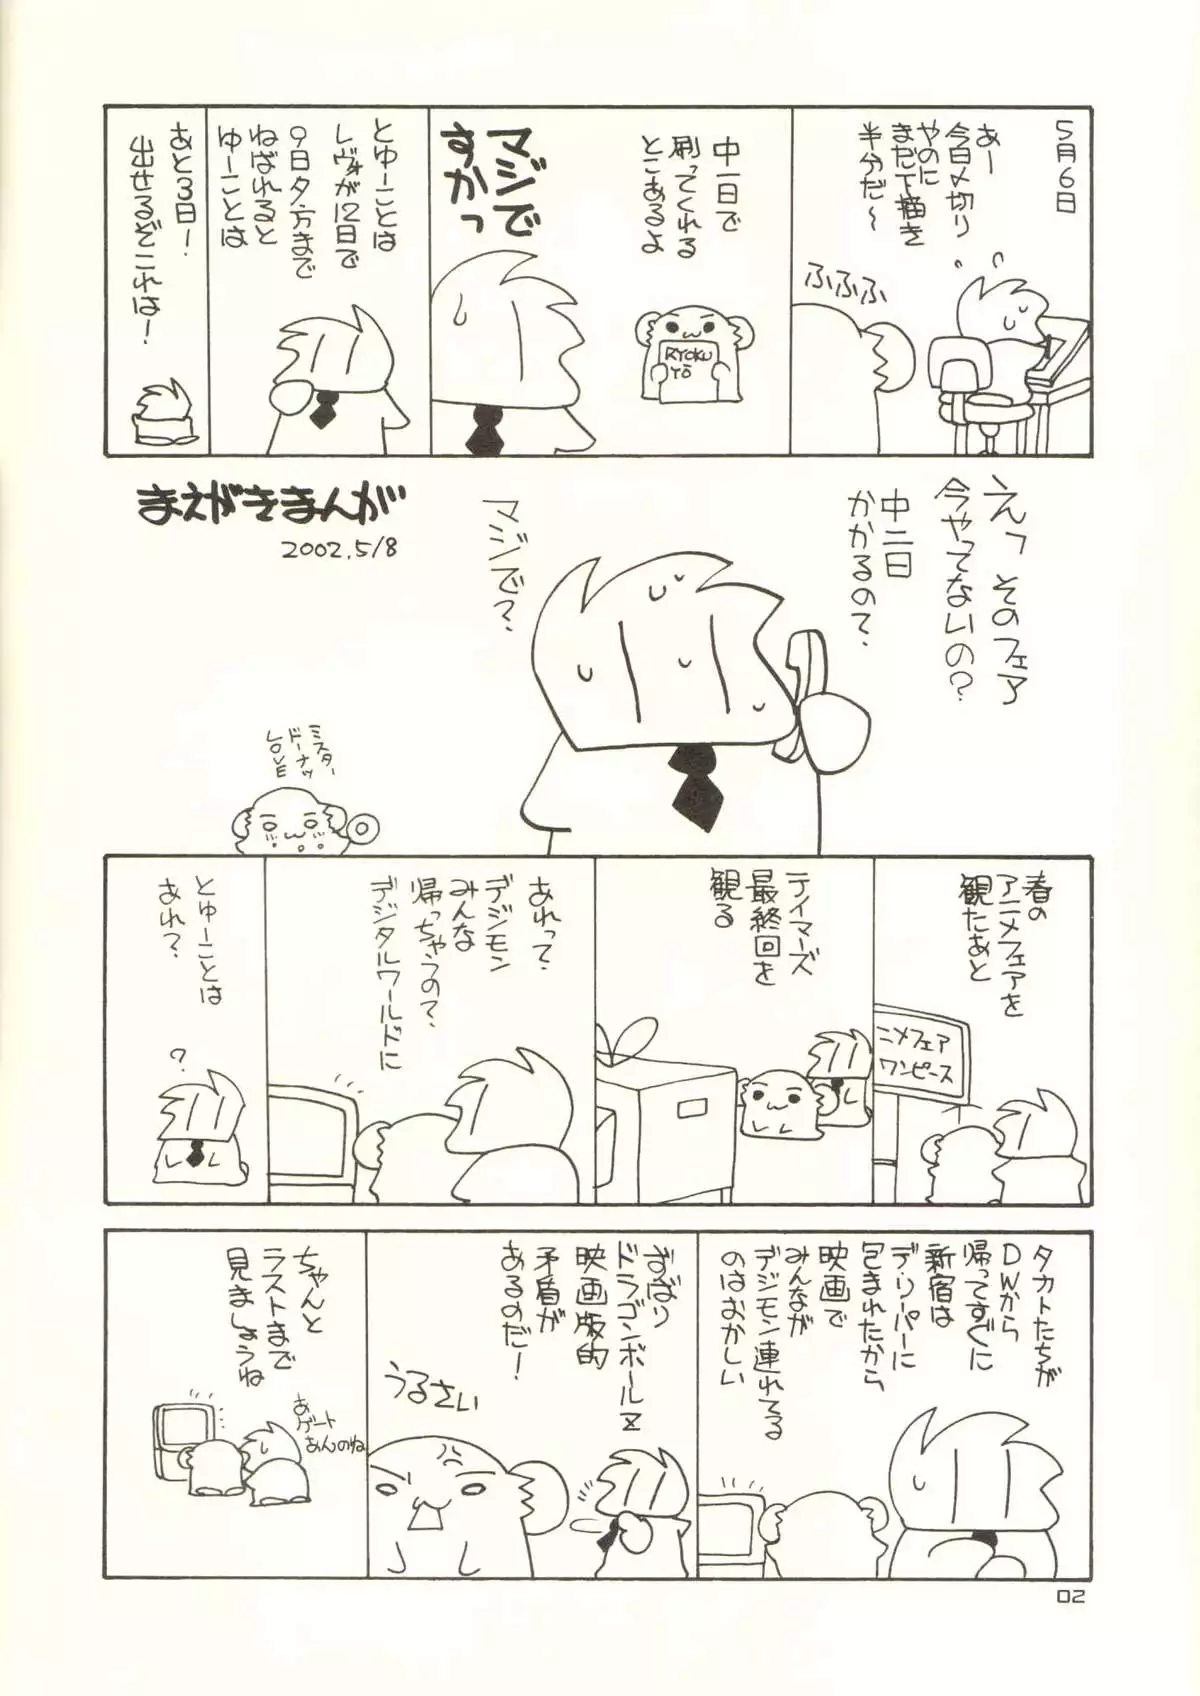 5月6日
あー
今日〆切り
やのに
まだ下描き
半分だ〜
ふふふ
中一日で
刷ってくれる
とこあるよ
RYOKU
YŌ
マジで
すかっ
とゆーことは
レヴォが12日で
9日夕方まで
ねばれると
ゆーことは
あと3日!
出せるぞこれは!
まえがきまんが
2002.5/8
えっ そのフェア
今やってないの?
中二日
かかるの?
マジで?
ミスター
ドーナツ
LOVE
春の
アニメフェアを
観たあと
ニメフェア
ワンピース
テイマーズ
最終回を
観る
あれって、
デジモン
みんな
帰っちゃうの?
デジタルワールドに
とゆーことは
あれ?
?
タカトたちが
DWから
帰ってすぐに
新宿は
デ・リーパーに
包まれたから
映画で
みんなが
デジモン連れてる
のはおかしい
ずばり
ドラゴンボールZ
映画版的
矛盾が
あるのだ!
うるさい
ちゃんと
ラストまで
見ましょうね
あ
ゲート
あんのね
02